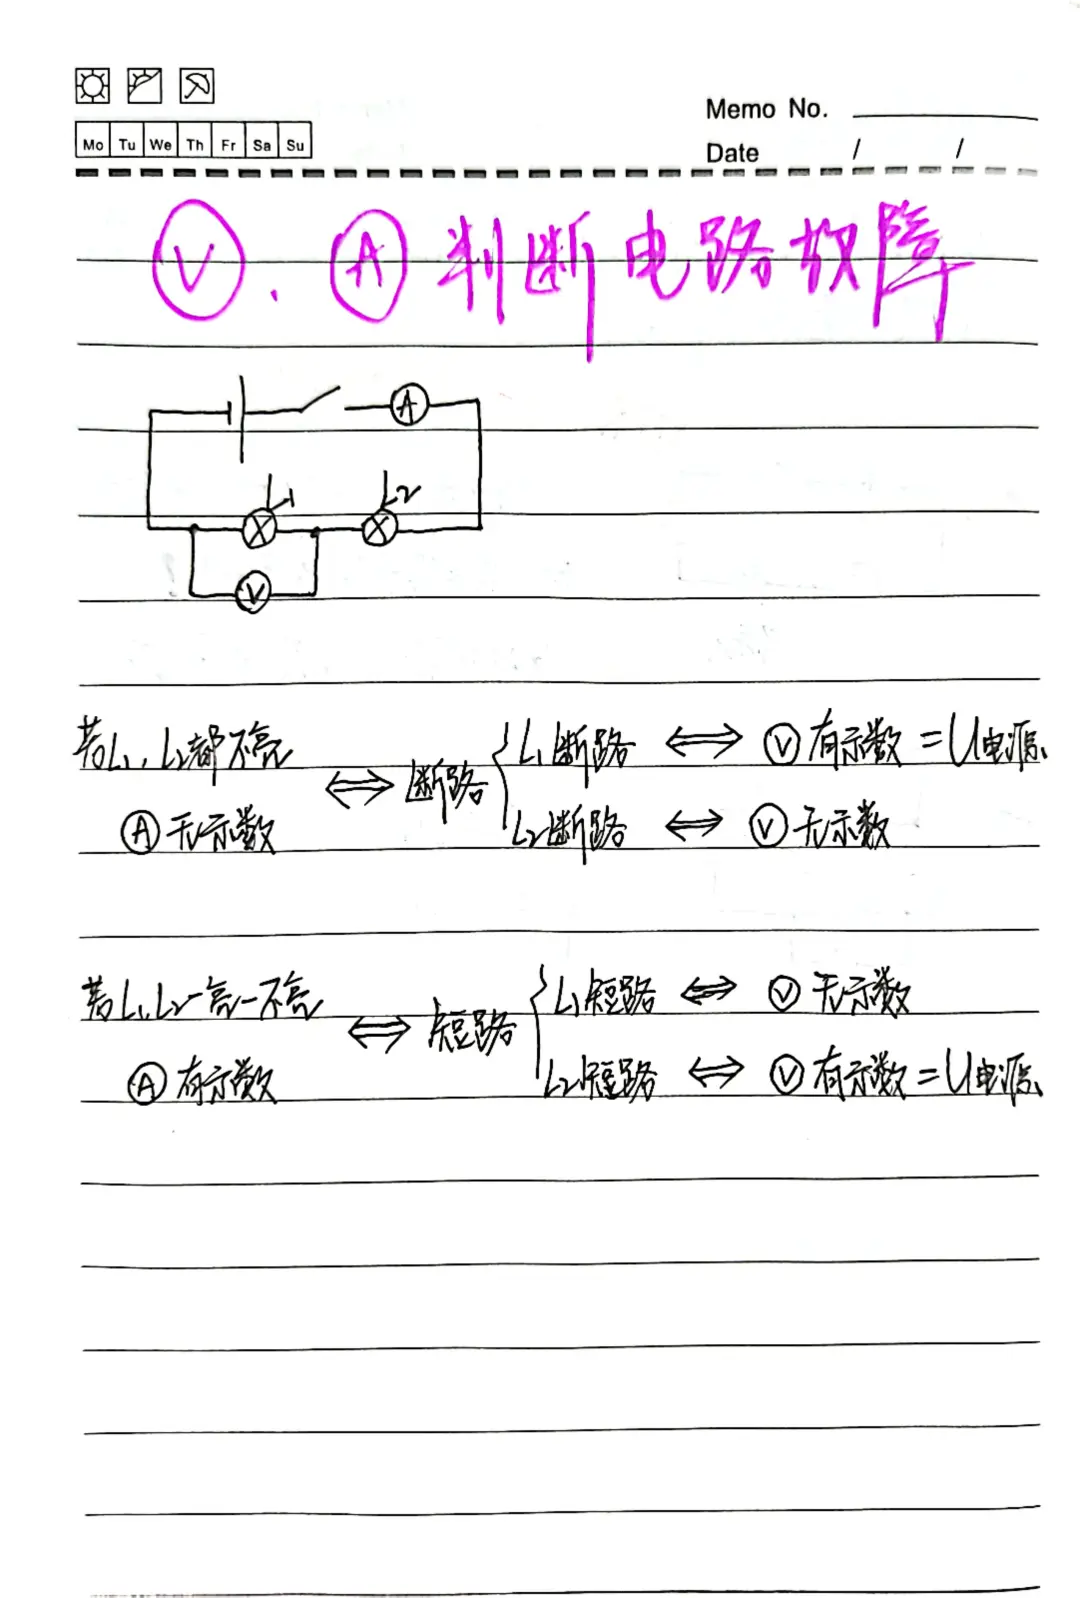 Memo No.
Mo Tu We Th Fr Sa Su
Date / /
Ⓥ、Ⓐ判断电路故障
A
L1 L2
V
若L1、L2都不亮
Ⓐ无示数
⇔ 断路
L1断路 ⇔ Ⓥ有示数=U电源
L2断路 ⇔ Ⓥ无示数
若L1、L2一亮一不亮
Ⓐ有示数
⇔ 短路
L1短路 ⇔ Ⓥ无示数
L2短路 ⇔ Ⓥ有示数=U电源